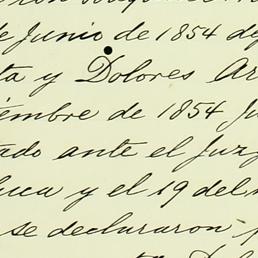 de Junio de 1854 de
ta y Dolores Ar
iembre de 1854 Ju
ado ante el Juzg
luca y el 19 del m
se declararon p